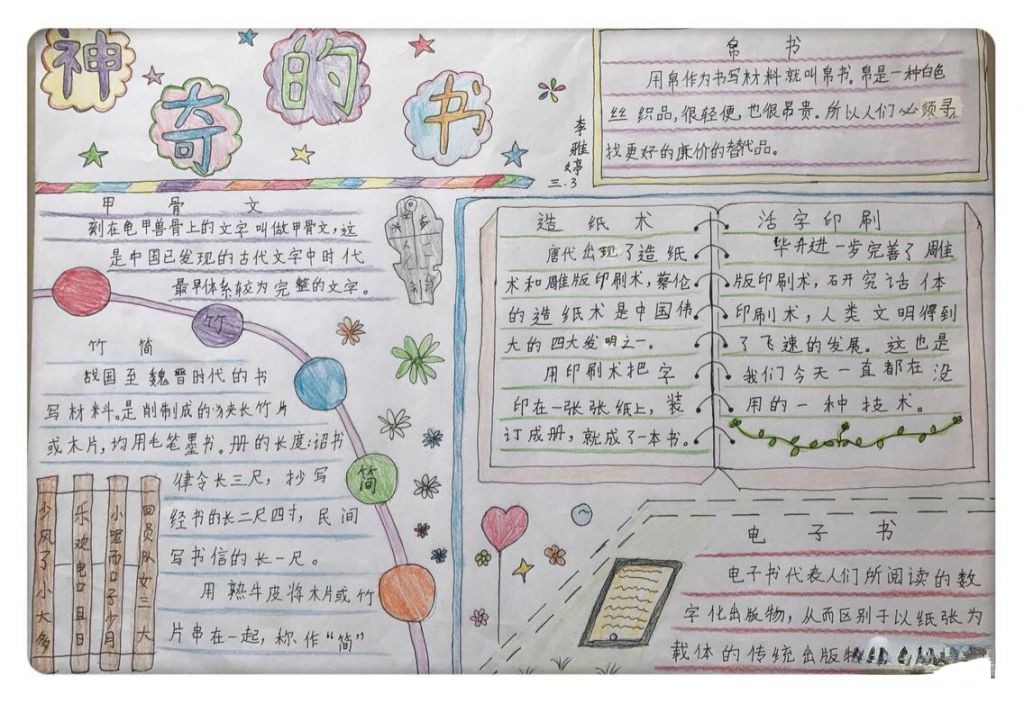 神奇的书
李雅婷
三.3
帛书
用帛作为书写材料就叫帛书。帛是一种白色
丝织品，很轻便，也很昂贵。所以人们必须寻
找更好的廉价的替代品。
甲骨文
刻在龟甲兽骨上的文字叫做甲骨文，这
是中国已发现的古代文字中时代
最早体系较为完整的文字。
竹
竹简
战国至魏晋时代的书
写材料。是削制成的狭长竹片
或木片，均用毛笔墨书。册的长度：诏书
律令长三尺，抄写
经书的长二尺四寸，民间
写书信的长一尺。
用熟牛皮将木片或竹
片串在一起，称作“简”
简
少风了小大多
乐欢电口且日
小咀而口子少月
回员队女三大
造纸术
唐代出现了造纸
术和雕版印刷术，蔡伦
的造纸术是中国伟
大的四大发明之一。
用印刷术把字
印在一张张纸上，装
订成册，就成了一本书。
活字印刷
毕升进一步完善了雕
版印刷术，研究活体
印刷术，人类文明得到
了飞速的发展。这也是
我们今天一直都在没
用的一种技术。
电子书
电子书代表人们所阅读的数
字化出版物，从而区别于以纸张为
载体的传统出版物